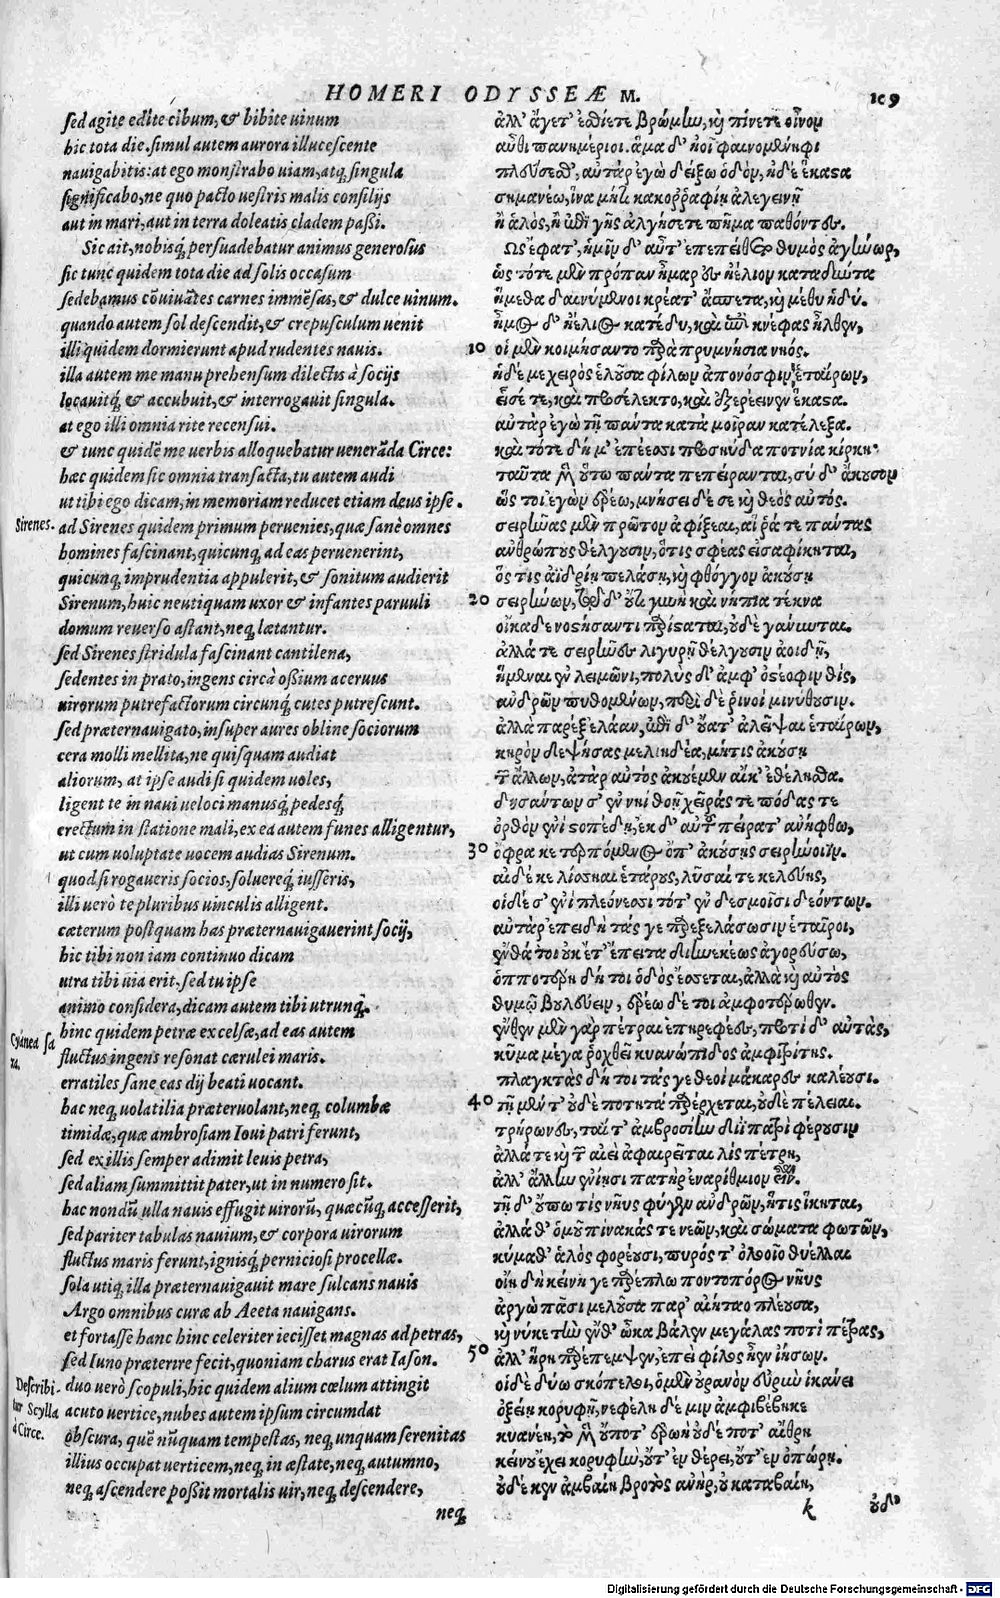 HOMERI ODYSSEÆ M. 109
sed agite edite cibum, & bibite uinum
hic tota die. simul autem aurora illucescente
nauigabitis: at ego monstrabo uiam, atq; singula
significabo, ne quo pacto uestris malis consilijs
aut in mari, aut in terra doleatis cladem passi.
Sic ait, nobisq; persuadebatur animus generosus
sic tunc quidem tota die ad solis occasum
sedebamus cõuiuãtes carnes immẽsas, & dulce uinum.
quando autem sol descendit, & crepusculum uenit
illi quidem dormierunt apud rudentes nauis.
illa autem me manu prehensum dilectis à socijs
locauitq; & accubuit, & interrogauit singula.
at ego illi omnia rite recensui.
& tunc quidẽ me uerbis alloquebatur uenerãda Circe:
hæc quidem sic omnia transacta, tu autem audi
ut tibi ego dicam, in memoriam reducet etiam deus ipse.
Sirenes. ad Sirenes quidem primum peruenies, quæ sanè omnes
homines fascinant, quicunq; ad eas peruenerint,
quicunq; imprudentia appulerit, & sonitum audierit
Sirenum, huic neutiquam uxor & infantes paruuli
domum reuerso astant, neq; lætantur.
sed Sirenes stridula fascinant cantilena,
sedentes in prato, ingens circà ossium aceruus
uirorum putrefactorum circunq; cutes putrescunt.
sed præternauigato, insuper aures obline sociorum
cera molli mellita, ne quisquam audiat
aliorum, at ipse audi si quidem uoles,
ligent te in naui ueloci manusq; pedesq;
erectum in statione mali, ex ea autem funes alligentur,
ut cum uoluptate uocem audias Sirenum.
quod si rogaueris socios, soluereq; iusseris,
illi uerò te pluribus uinculis alligent.
cæterum postquam has præternauigauerint socij,
hic tibi non iam continuo dicam
utra tibi uia erit, sed tu ipse
animo considera, dicam autem tibi utrunq;.
Cyanea saxa. hinc quidem petræ excelsæ, ad eas autem
fluctus ingens resonat cærulei maris.
erratiles sane eas dij beati uocant.
hac neq; uolatilia præteruolant, neq; columbæ
timidæ, quæ ambrosiam Ioui patri ferunt,
sed ex illis semper adimit leuis petra,
sed aliam summittit pater, ut in numero sit.
hac nondũ ulla nauis effugit uirorũ, quæcũq; accesserit,
sed pariter tabulas nauium, & corpora uirorum
fluctus maris ferunt, ignisq; perniciosi procellæ.
sola utiq; illa præternauigauit mare sulcans nauis
Argo omnibus curæ ab Aeeta nauigans.
et fortasse hanc hinc celeriter iecisset magnas ad petras,
sed Iuno præterire fecit, quoniam charus erat Iason.
Describitur Scylla à Circe. duo uerò scopuli, hic quidem alium cœlum attingit
acuto uertice, nubes autem ipsum circumdat
obscura, quẽ nũquam tempestas, neq; unquam serenitas
illius occupat uerticem, neq; in æstate, neq; autumno,
neq; ascendere possit mortalis uir, neq; descendere,
neq;
ἀλλ' ἄγετ' ἐσθίετε βρώμην, καὶ πίνετε οἶνον
αὖθι πανημέριοι. ἅμα δ' ἠοῖ φαινομένηφι
πλεύσεσθ', αὐτὰρ ἐγὼ δείξω ὁδὸν, ἠδὲ ἕκαστα
σημανέω, ἵνα μήτι κακορραφίῃ ἀλεγεινῇ
ἢ ἁλὸς, ἢ ἐπὶ γῆς ἀλγήσετε πῆμα παθόντες.
Ως ἔφατ', ἡμῖν δ' αὖτ' ἐπεπείθετο θυμὸς ἀγήνωρ,
ὣς τότε μὲν πρόπαν ἦμαρ ἐς ἠέλιον καταδύντα
ἥμεθα δαινύμενοι κρέατ' ἄσπετα, καὶ μέθυ ἡδύ.
ἦμος δ' ἠέλιος κατέδυ, καὶ ἐπὶ κνέφας ἦλθεν,
10 οἱ μὲν κοιμήσαντο παρὰ πρυμνήσια νηός.
ἡ δέ με χειρὸς ἑλοῦσα φίλων ἀπονόσφιν ἑταίρων,
εἷσέ τε, καὶ προσέλεκτο, καὶ ἐξερέεινεν ἕκαστα.
αὐτὰρ ἐγὼ τῇ πάντα κατὰ μοῖραν κατέλεξα.
καὶ τότε δή μ' ἐπέεσσι προσηύδα ποτνία κίρκη·
ταῦτα μὲν οὕτω πάντα πεπείρανται, σὺ δ' ἄκουσον
ὥς τοι ἐγὼν ἐρέω, μνήσει δέ σε καὶ θεὸς αὐτός.
σειρῆνας μὲν πρῶτον ἀφίξεαι, αἵ ῥά τε πάντας
ἀνθρώπους θέλγουσιν, ὅτις σφέας εἰσαφίκηται,
ὅς τις ἀϊδρίῃ πελάσῃ, καὶ φθόγγον ἀκούσῃ
20 σειρήνων, τῷ δ' οὔτι γυνὴ καὶ νήπια τέκνα
οἴκαδε νοστήσαντι παρίσταται, οὐδὲ γάνυνται.
ἀλλά τε σειρῆνες λιγυρῇ θέλγουσιν ἀοιδῇ,
ἥμεναι ἐν λειμῶνι, πολὺς δ' ἀμφ' ὀστεόφιν θὶς,
ἀνδρῶν πυθομένων, περὶ δὲ ῥινοὶ μινύθουσιν.
ἀλλὰ παρεξελάαν, ἐπὶ δ' οὔατ' ἀλεῖψαι ἑταίρων,
κηρὸν δεψήσας μελιηδέα, μήτις ἀκούσῃ
τῶν ἄλλων, ἀτὰρ αὐτὸς ἀκουέμεν αἴκ' ἐθέλησθα.
δησάντων σ' ἐν νηὶ θοῇ χεῖράς τε πόδας τε
ὀρθὸν ἐν ἱστοπέδῃ, ἐκ δ' αὐτοῦ πείρατ' ἀνήφθω,
30 ὄφρα κε τερπόμενος ὄπ' ἀκούσῃς σειρήνοιϊν.
αἰ δέ κε λίσσηαι ἑτάρους, λῦσαί τε κελεύῃς,
οἱ δέ σ' ἐνὶ πλεόνεσσι τότ' ἐν δεσμοῖσι δεόντων.
αὐτὰρ ἐπειδὴ τάς γε παρεξελάσωσιν ἑταῖροι,
ἔνθά τοι οὐκ ἔτ' ἔπειτα διηνεκέως ἀγορεύσω,
ὁπποτέρη δή τοι ὁδὸς ἔσσεται, ἀλλὰ καὶ αὐτὸς
θυμῷ βουλεύειν, ἐρέω δέ τοι ἀμφοτέρωθεν.
ἔνθεν μὲν γὰρ πέτραι ἐπηρεφέες, προτὶ δ' αὐτὰς,
κῦμα μέγα ῥοχθεῖ κυανώπιδος ἀμφιτρίτης.
πλαγκτὰς δή τοι τάς γε θεοὶ μάκαρες καλέουσι.
40 τῇ μέν τ' οὐδὲ ποτητὰ παρέρχεται, οὐδὲ πέλειαι.
τρήρωνες, ταί τ' ἀμβροσίην διῒ πατρὶ φέρουσιν
ἀλλά τε καὶ τῶν αἰεὶ ἀφαιρεῖται λὶς πέτρη,
ἀλλ' ἄλλην ἐνίησι πατὴρ ἐναρίθμιον εἶναι.
τῇ δ' οὔπω τίς νηῦς φύγεν ἀνδρῶν, ἥτις ἵκηται,
ἀλλά θ' ὁμοῦ πίνακάς τε νεῶν, καὶ σώματα φωτῶν,
κύμαθ' ἁλὸς φορέουσι, πυρός τ' ὀλοοῖο θύελλαι
οἴη δὴ κείνη γε παρέπλω ποντοπόρος νηῦς
ἀργὼ πᾶσι μέλουσα παρ' αἰήταο πλέουσα,
καί νύ κε τὴν ἔνθ' ὦκα βάλεν μεγάλας ποτὶ πέτρας,
50 ἀλλ' ἥρη παρέπεμψεν, ἐπεὶ φίλος ἦεν ἰήσων.
οἱ δὲ δύω σκόπελοι, ὁ μὲν οὐρανὸν εὐρὺν ἱκάνει
ὀξείῃ κορυφῇ, νεφέλη δέ μιν ἀμφιβέβηκε
κυανέη, τὸ μὲν οὔποτ' ἐρωεῖ οὐδέ ποτ' αἴθρη
κείνου ἔχει κορυφὴν, οὔτ' ἐν θέρει, οὔτ' ἐν ὀπώρῃ.
οὐδέ κεν ἀμβαίη βροτὸς ἀνὴρ, οὐ καταβαίη,
k οὐδ'
Digitalisierung gefördert durch die Deutsche Forschungsgemeinschaft - DFG